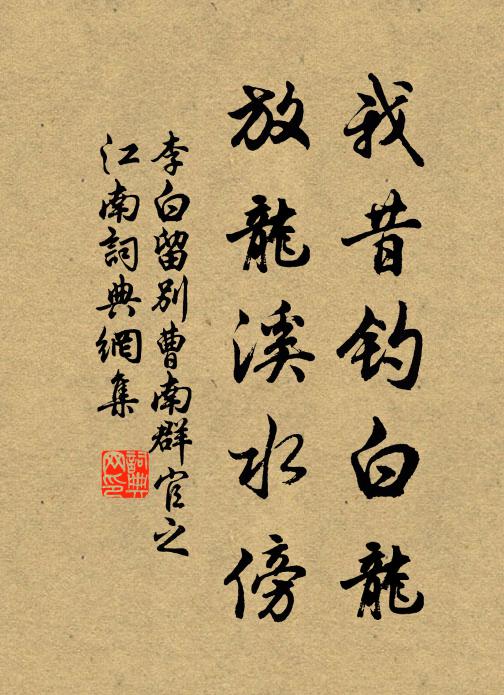 我昔钓白龍
放龍溪水傍
李白留別曹南群官之
江南詞典網集
詞典
网印